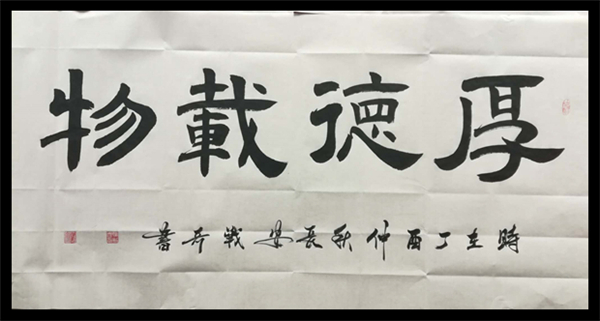 厚德載物
時在丁酉仲秋長安戰奇書